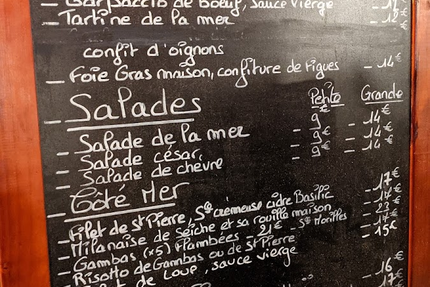 Carpaccio de boeuf, sauce vierge - 14€
- Tartine de la mer - 12€
confit d'oignons
- Foie Gras maison, confiture de Figues - 14€
- Salades Petite Grande
- Salade de la mer - 9€ - 14€
- Salade césar - 9€ - 14€
- Salade de chèvre - 9€ - 14€
- Côté Mer
- Filet de St Pierre, Sce crémeuse cidre Basilic - 17€
- Milanaise de Seiche et sa rouille maison
- Gambas (x5) Flambées - 21€ - Sce Morilles 23€
- Risotto de Gambas ou de St Pierre - 15€
de Loup, sauce vierge
16€
17€